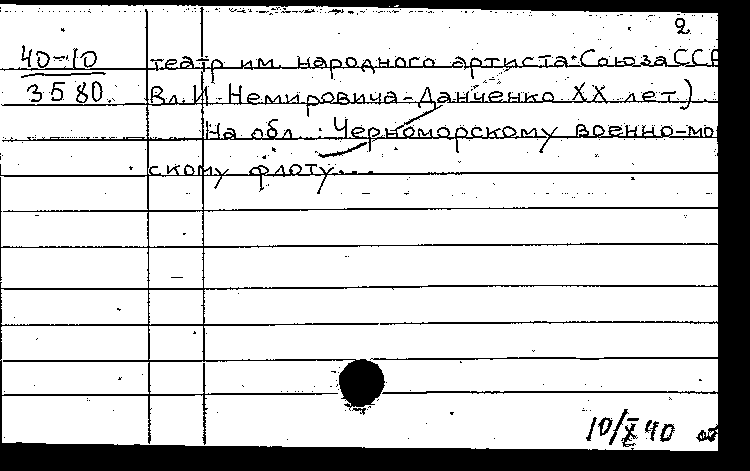 2
40-10
3580.
театр им. народного артиста Союза ССР
Вл. И. Немировича-Данченко XX лет).
На обл.: Черноморскому военно-мо
скому флоту...
10/X 40